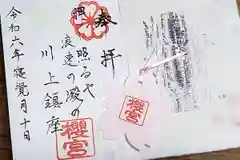 奉拝
照るや
浪速の渡の
川上鎮座
櫻宮
令和六年
月十日
櫻宮